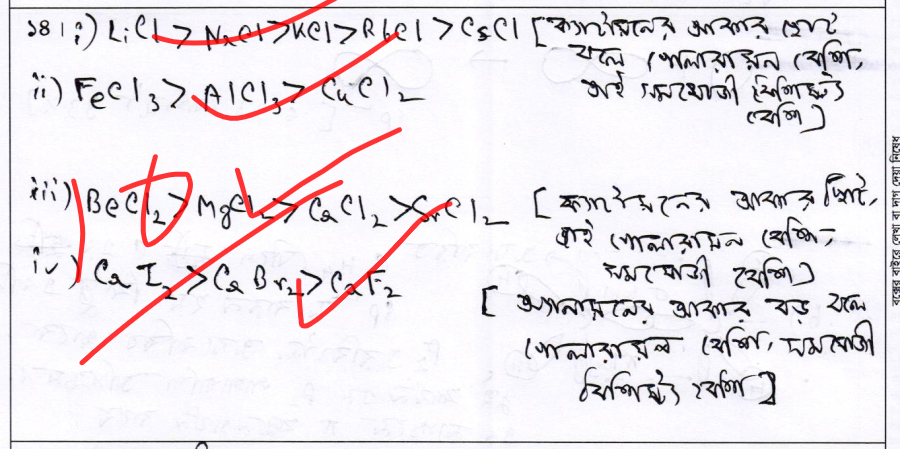 ১৪। i) LiCl > NaCl > KCl > RbCl > CsCl [ক্যাটায়নের আকার ছোট
বলে পোলারায়ন বেশি,
তাই সমযোজী বৈশিষ্ট্য
বেশি]
ii) FeCl3 > AlCl3 > CuCl2
iii) BeCl2 > MgCl2 > CaCl2 > SrCl2 [ক্যাটায়নের আকার ছোট,
তাই পোলারায়ন বেশি-
সমযোজী বেশি]
iv) CaI2 > CaBr2 > CaF2
[অ্যানায়নের আকার বড় বলে
পোলারায়ন বেশি, সমযোজী
বৈশিষ্ট্য বেশি]
বক্সের বাইরে লেখা বা দাগ দেয়া নিষেধ